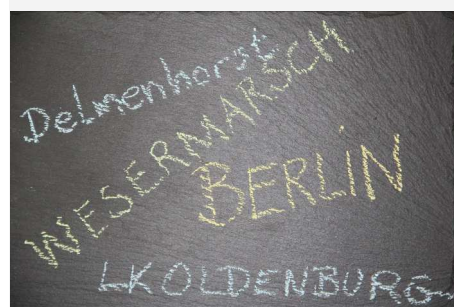 Delmenhorst
WESERMARSCH
BERLiN
LK OLDENBURG